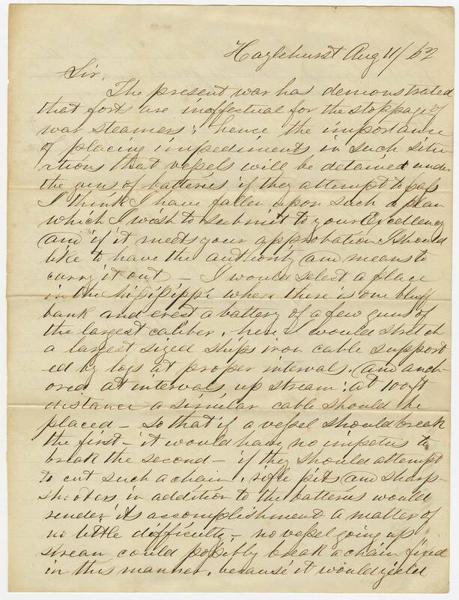 Hazlehurst Aug 11/62
Sir,
The present war has demonstrated
that forts are ineffectual for the stoppage of
war steamers; hence the importance
of placing impediments in such situ-
ations that vessels will be detained under
the guns of batteries if they attempt to pass
I think I have fallen upon such a plan
which I wish to submit to your Excellency
and if it meets your approbation I should
like to have the authority and means to
carry it out — I would select a place
in the Mississippi where there is one bluff
bank and erect a battery of a few guns of
the largest caliber, here I would stretch
a largest sized ships iron cable support-
ed by logs at proper intervals, and anch-
ored at intervals, up stream: at 100 ft
distance a similar cable should be
placed — so that if a vessel should break
the first — it would have no impetus to
break the second — if they should attempt
to cut such a chain, rifle pits and sharp
shooters in addition to the batteries would
render its accomplishment a matter of
no little difficulty — no vessel going up
stream could possibly break a chain fixed
in this manner, because it would yield